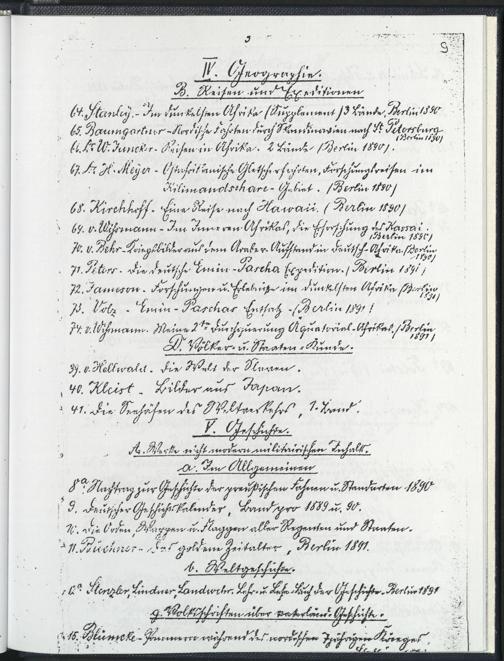 3
9
IV. Geographie.
B. Reisen und Expeditionen
64. Stanley. - Im dunkelsten Afrika (Supplement) 3 Bände, Berlin 1890
65. Baumgartner - Nordische Fahrten durch Skandinavien nach St. Petersburg
(Berlin 1890)
66. Dr. W. Juncker - Reisen in Afrika. 2 Bände (Berlin 1890)
67. Dr. H. Meyer - Ostafrikanische Gletscherfahrten, Forschungsreisen im
Kilimandscharo-Gebiet. (Berlin 1890)
68. Kirchhoff - Eine Reise nach Hawaii. (Berlin 1890)
69. v. Wißmann - Im Inneren Afrikas, die Erforschung des Kassai
(Berlin 1891)
70. v. Behr - Kriegsbilder aus dem Araber-Aufstand in Deutsch-Afrika (Berlin
1891)
71. Peters - Die deutsche Emin-Pascha Expedition. (Berlin 1891)
72. Jameson - Forschungen u. Erlebnisse im dunkelsten Afrika (Berlin
1891)
73. Volz - Emin-Paschas Entsatz - (Berlin 1891)
74. v. Wißmann. Meine 2te Durchquerung Äquatorial-Afrikas. (Berlin
1891)
D. Völker- u. Staaten-Kunde.
39. v. Hellwald - Die Welt der Slaven.
40. Kleist - Bilder aus Japan.
41. Die Seehäfen des Weltverkehrs, 1. Band.
V. Geschichte.
A. Werke nicht modern militairischen Inhalts.
a. Im Allgemeinen
8a. Nachtrag zur Geschichte der preußischen Fahnen u. Standarten 1890
9. Deutscher Geschichtskalender, Band pro 1889 u. 90.
10. Die Orden, Wappen u. Flaggen aller Regenten und Staaten.
11. Büchner - Das goldene Zeitalter, Berlin 1891.
b. Weltgeschichte.
Stenzler, Lindner, Landwehr. Lehr- u. Lese-Buch der Geschichte. Berlin 1891
g. Volksschriften über vaterländ. Geschichte.
15. Blümcke - Pommern während des nordischen 7jährigen Krieges